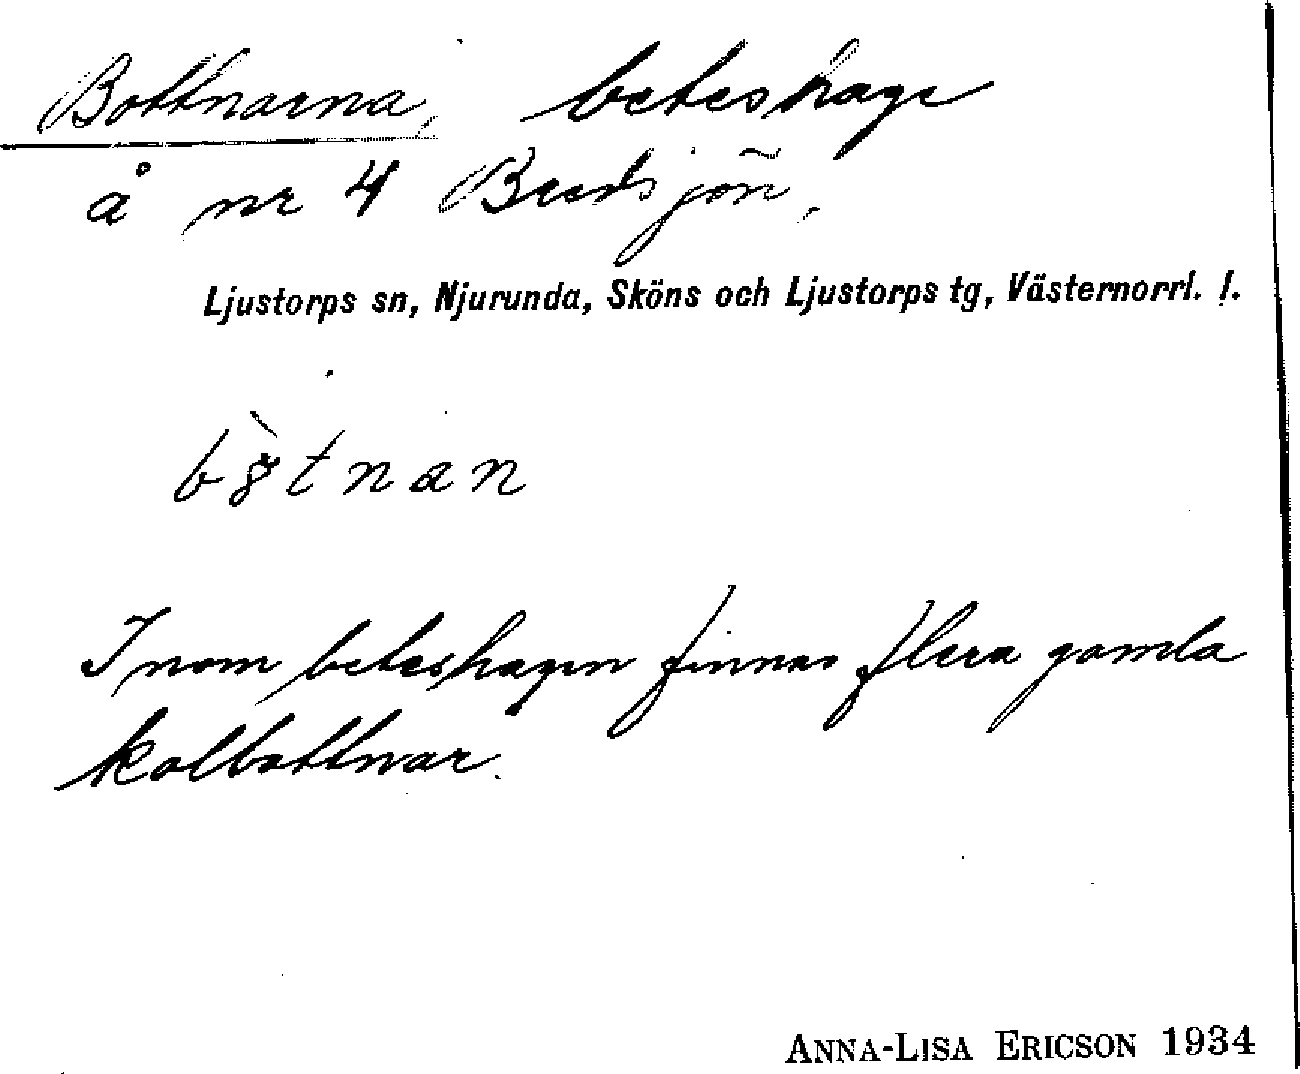 Bottnarna, beteshage
å nr 4 Bredsjön,
Ljustorps sn, Njurunda, Sköns och Ljustorps tg, Västernorrl. l.
Inom beteshagen finnas flera gamla
kolbottnar.
ANNA-LISA ERICSON 1934